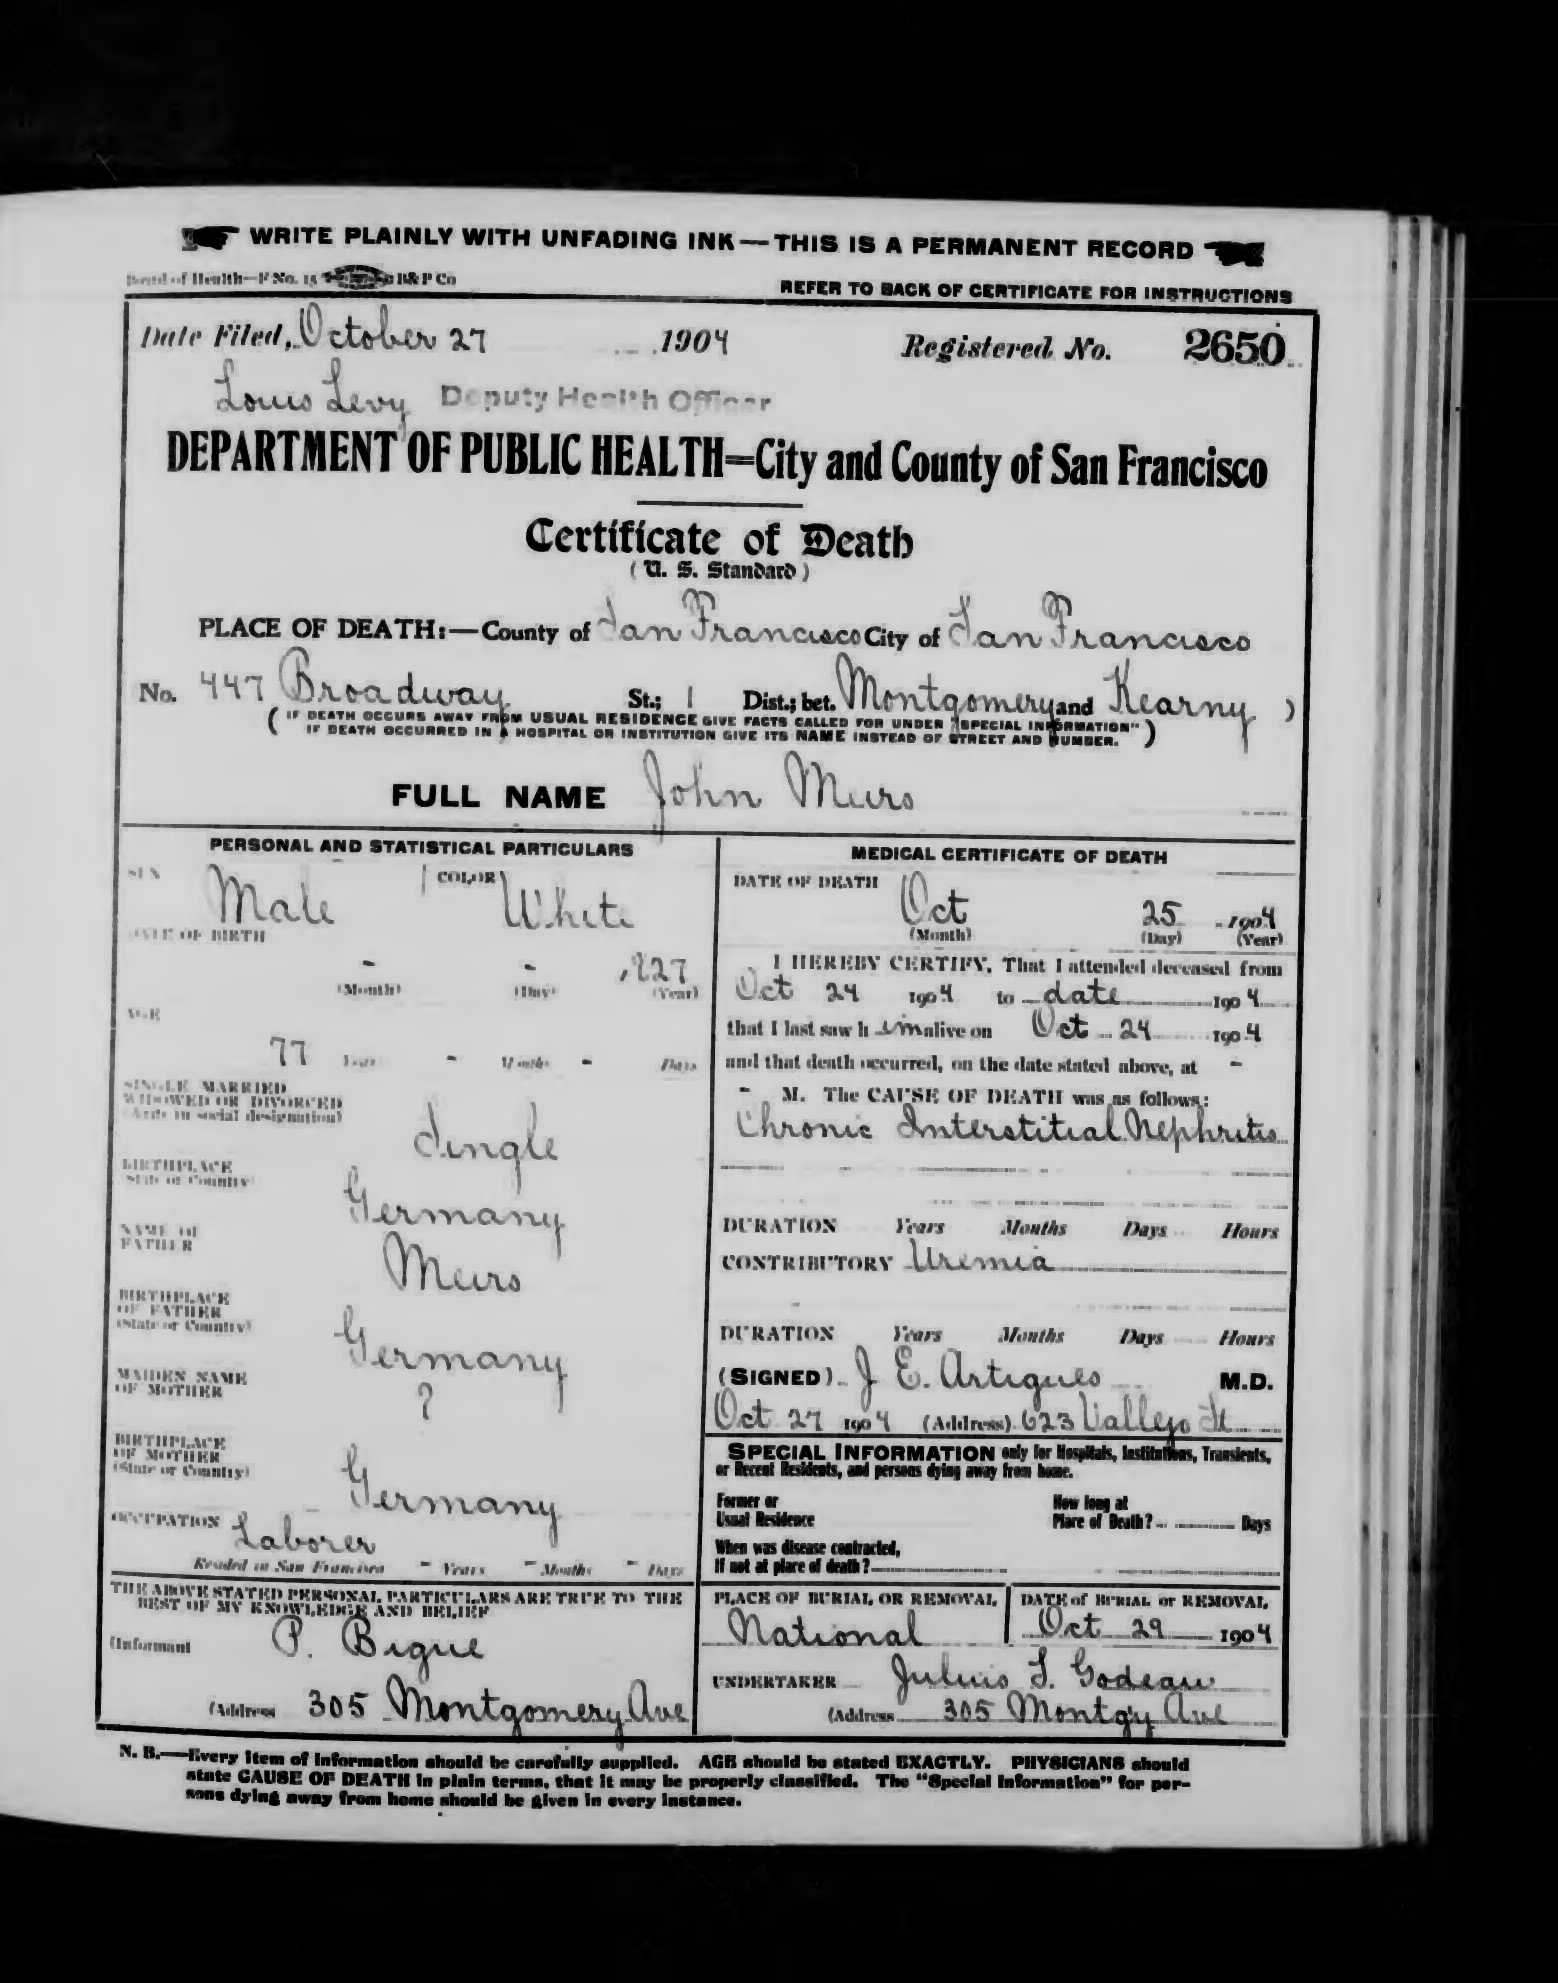 WRITE PLAINLY WITH UNFADING INK—THIS IS A PERMANENT RECORD
Board of Health—F No. 15 B&P Co
REFER TO BACK OF CERTIFICATE FOR INSTRUCTIONS
Date Filed, October 27 1904 Registered No. 2650
Louis Levy Deputy Health Officer
DEPARTMENT OF PUBLIC HEALTH=City and County of San Francisco
Certificate of Death
(U. S. Standard)
PLACE OF DEATH:—County of San Francisco City of San Francisco
No. 447 Broadway St.; 1 Dist.; bet. Montgomery and Kearny )
( IF DEATH OCCURS AWAY FROM USUAL RESIDENCE GIVE FACTS CALLED FOR UNDER "SPECIAL INFORMATION"
IF DEATH OCCURRED IN A HOSPITAL OR INSTITUTION GIVE ITS NAME INSTEAD OF STREET AND NUMBER. )
FULL NAME John Meurs
PERSONAL AND STATISTICAL PARTICULARS
SEX Male COLOR White
DATE OF BIRTH
- - 1827
(Month) (Day) (Year)
AGE
77 Years - Months - Days
SINGLE MARRIED
WIDOWED OR DIVORCED
(Write in social designation)
Single
BIRTHPLACE
(State or Country)
Germany
NAME OF
FATHER
Meurs
BIRTHPLACE
OF FATHER
(State or Country)
Germany
MAIDEN NAME
OF MOTHER
?
BIRTHPLACE
OF MOTHER
(State or Country)
Germany
OCCUPATION Laborer
Resided in San Francisco - Years - Months - Days
THE ABOVE STATED PERSONAL PARTICULARS ARE TRUE TO THE
BEST OF MY KNOWLEDGE AND BELIEF
(Informant P. Bigue
(Address 305 Montgomery Ave
MEDICAL CERTIFICATE OF DEATH
DATE OF DEATH
Oct 25 1904
(Month) (Day) (Year)
I HEREBY CERTIFY, That I attended deceased from
Oct 24 1904 to date 1904
that I last saw h im alive on Oct 24 1904
and that death occurred, on the date stated above, at -
- M. The CAUSE OF DEATH was as follows:
Chronic Interstitial Nephritis
DURATION Years Months Days Hours
CONTRIBUTORY Uremia
DURATION Years Months Days Hours
(SIGNED) J E. Artigues M.D.
Oct 27 1904 (Address) 623 Vallejo St
SPECIAL INFORMATION only for Hospitals, Institutions, Transients,
or Recent Residents, and persons dying away from home.
Former or
Usual Residence
How long at
Place of Death? Days
When was disease contracted,
If not at place of death?
PLACE OF BURIAL OR REMOVAL
National
DATE of BURIAL or REMOVAL
Oct 29 1904
UNDERTAKER Julius S. Godeau
(Address 305 Montg'y Ave
N. B.—Every item of information should be carefully supplied. AGE should be stated EXACTLY. PHYSICIANS should
state CAUSE OF DEATH in plain terms, that it may be properly classified. The "Special Information" for per-
sons dying away from home should be given in every instance.